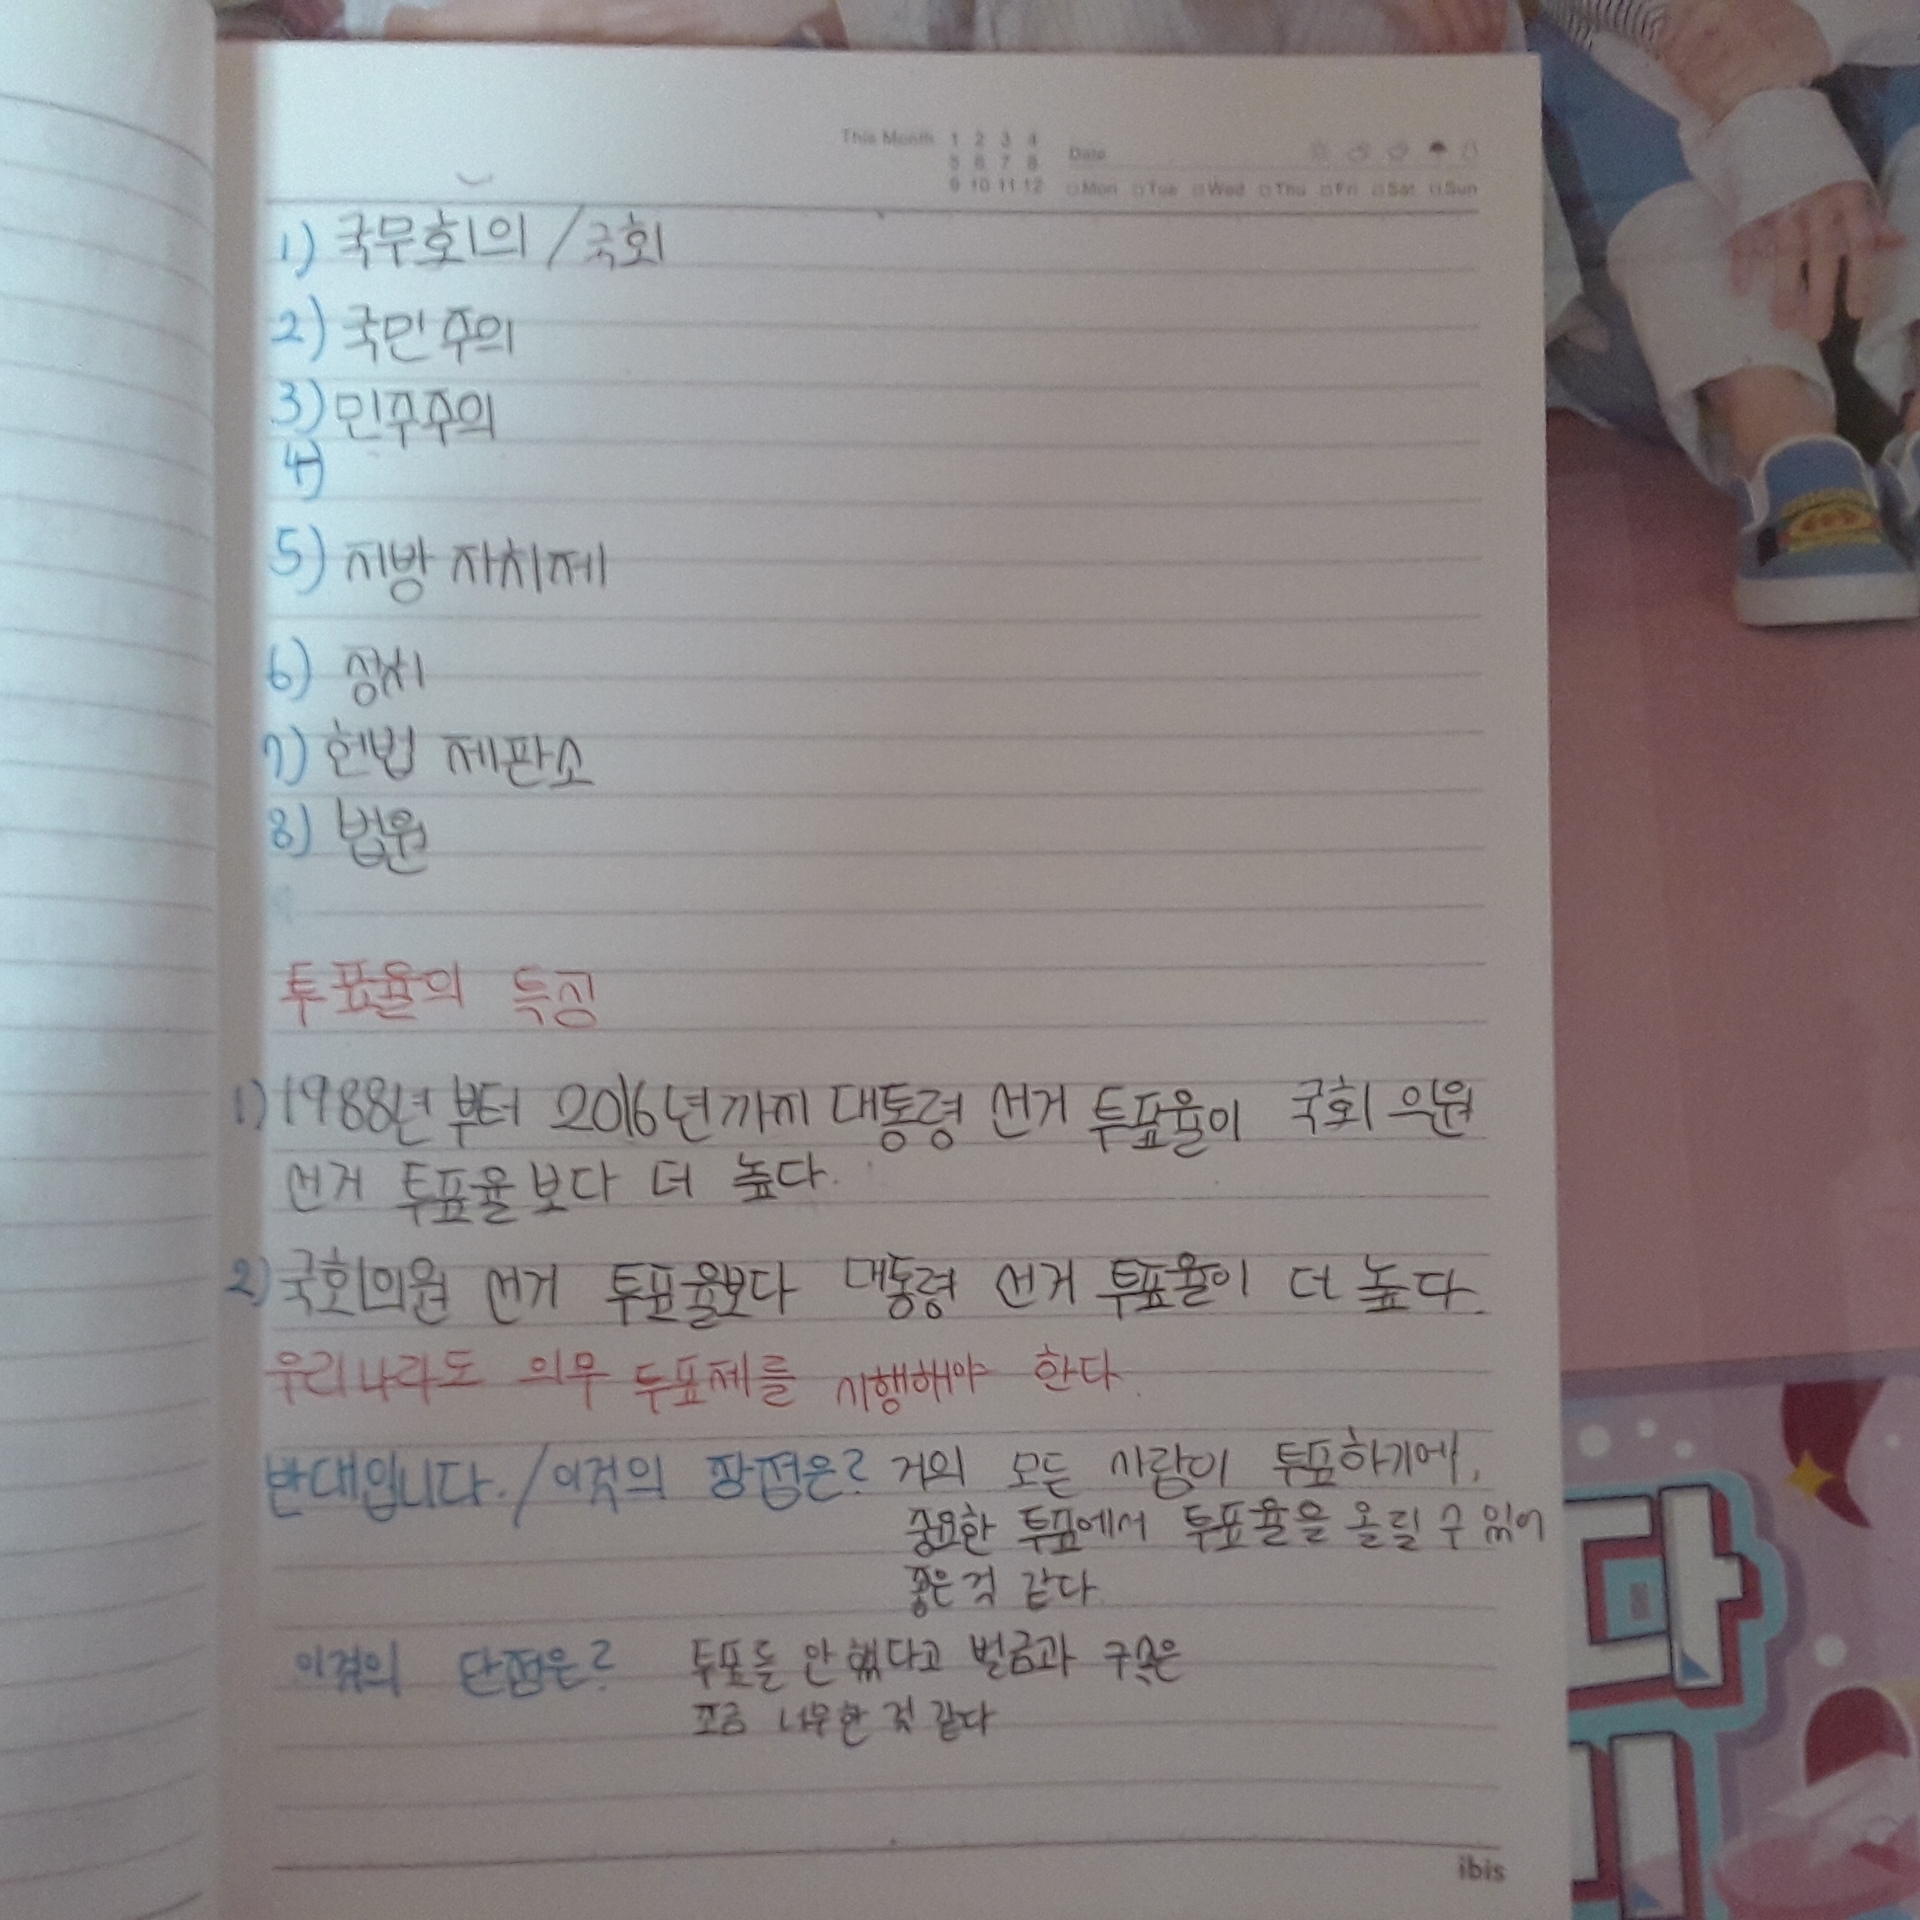 This Month 1 2 3 4
5 6 7 8
9 10 11 12
Date
Mon Tue Wed Thu Fri Sat Sun
1) 국무회의 / 국회
2) 국민 주의
3) 민주주의
4)
5) 지방 자치제
6) 정치
7) 헌법 제판소
8) 법원
투표율의 특징
1) 1988년 부터 2016년까지 대통령 선거 투표율이 국회 의원
선거 투표율 보다 더 높다.
2) 국회의원 선거 투표율보다 대통령 선거 투표율이 더 높다.
우리나라도 의무 투표제를 시행해야 한다.
반대입니다. / 이것의 장점은? 거의 모든 사람이 투표하기에,
중요한 투표에서 투표율을 올릴 수 있어
좋은 것 같다
이것의 단점은? 투표를 안 했다고 벌금과 구속은
조금 너무한 것 같다
ibis
다